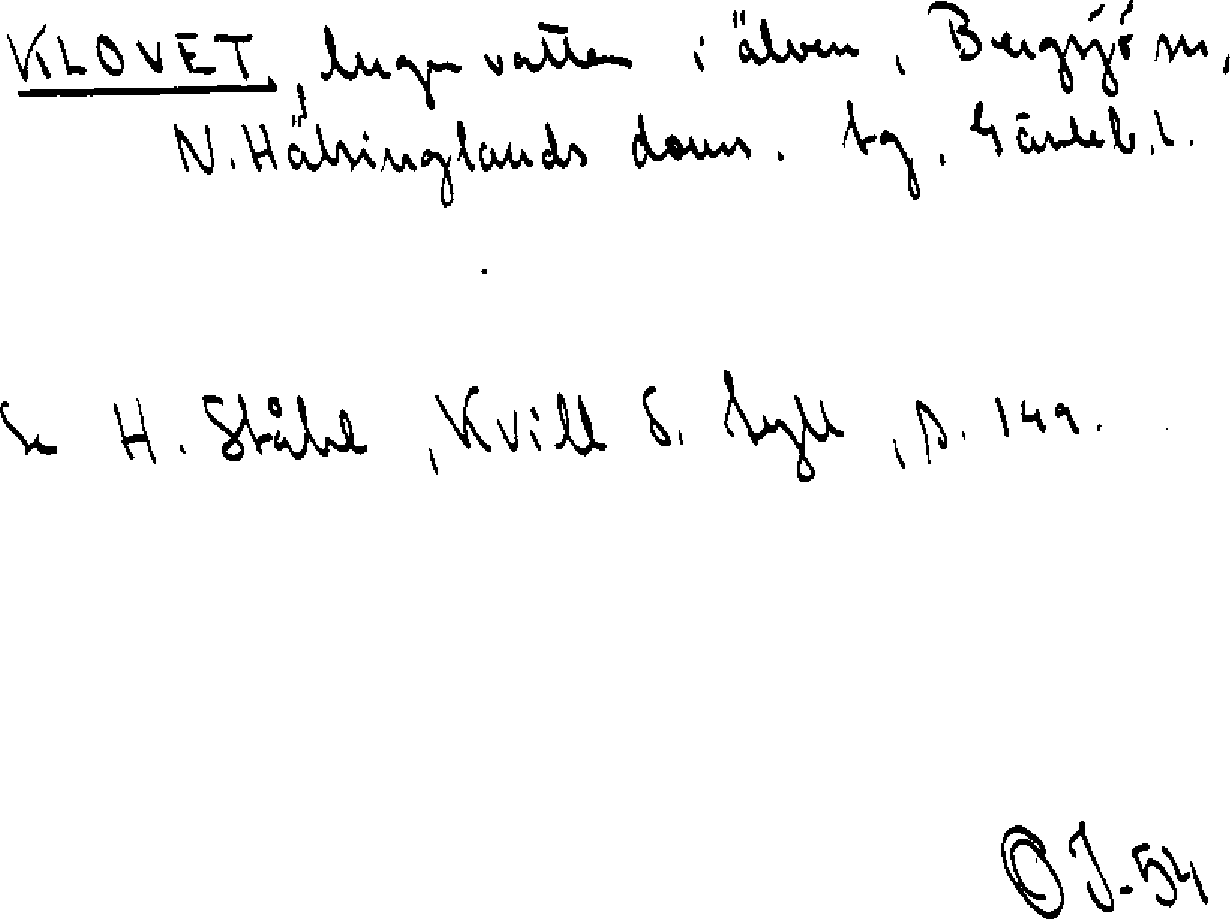 KLOVET, lugn vatten i älven, Bergsjö sn,
N. Hälsinglands doms. tg, Gävleb. l.
Se H. Ståhl, Kvill o. tyll, s. 149.
OJ-54